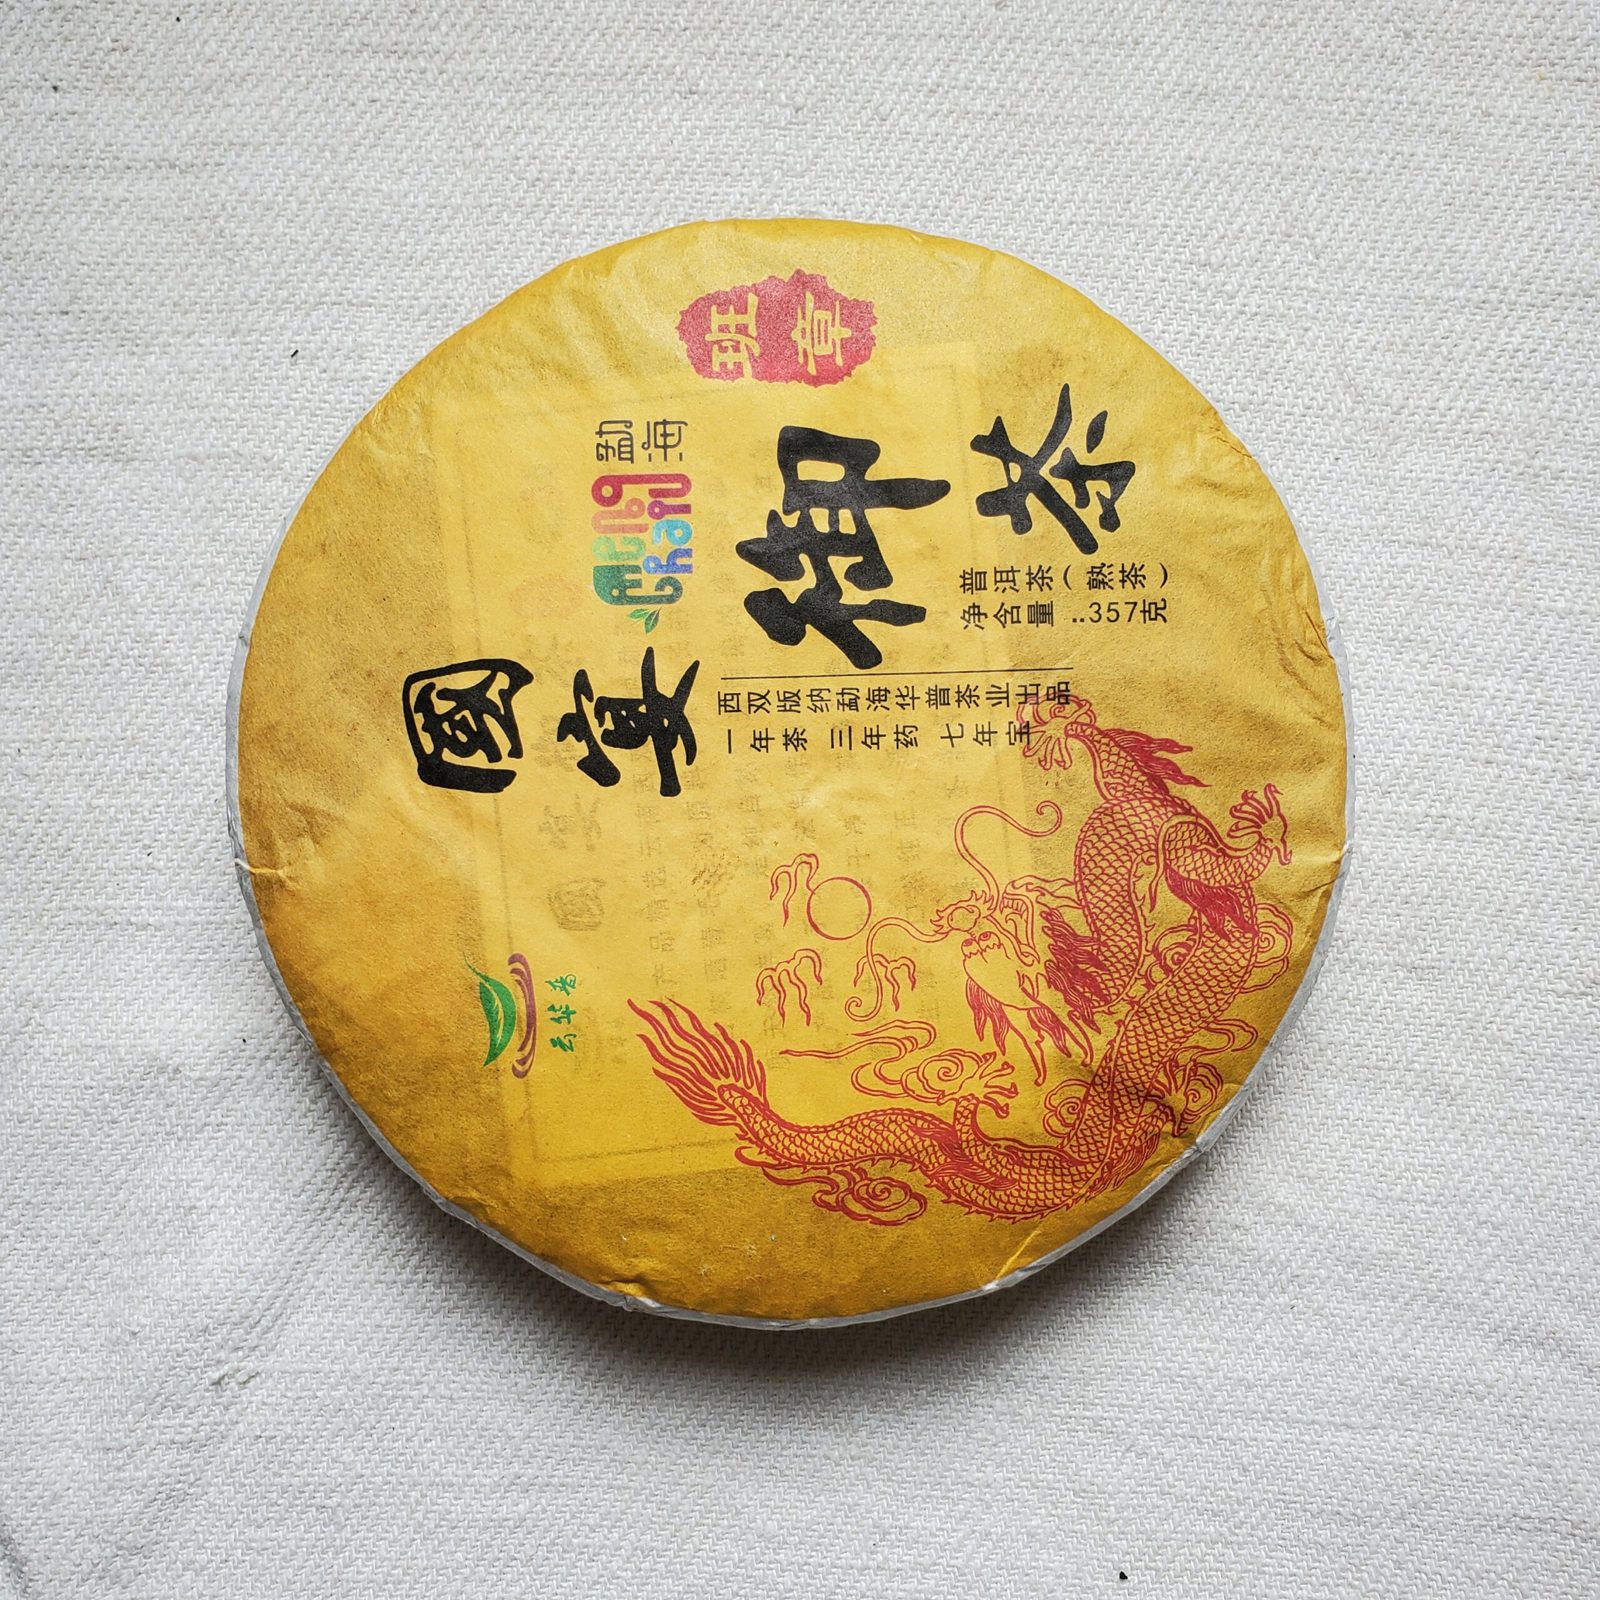 班章
勐海
Meng Hai
國宴
御茶
普洱茶（熟茶）
净含量：357克
西双版纳勐海华普茶业出品
一年茶 三年药 七年宝
云华普